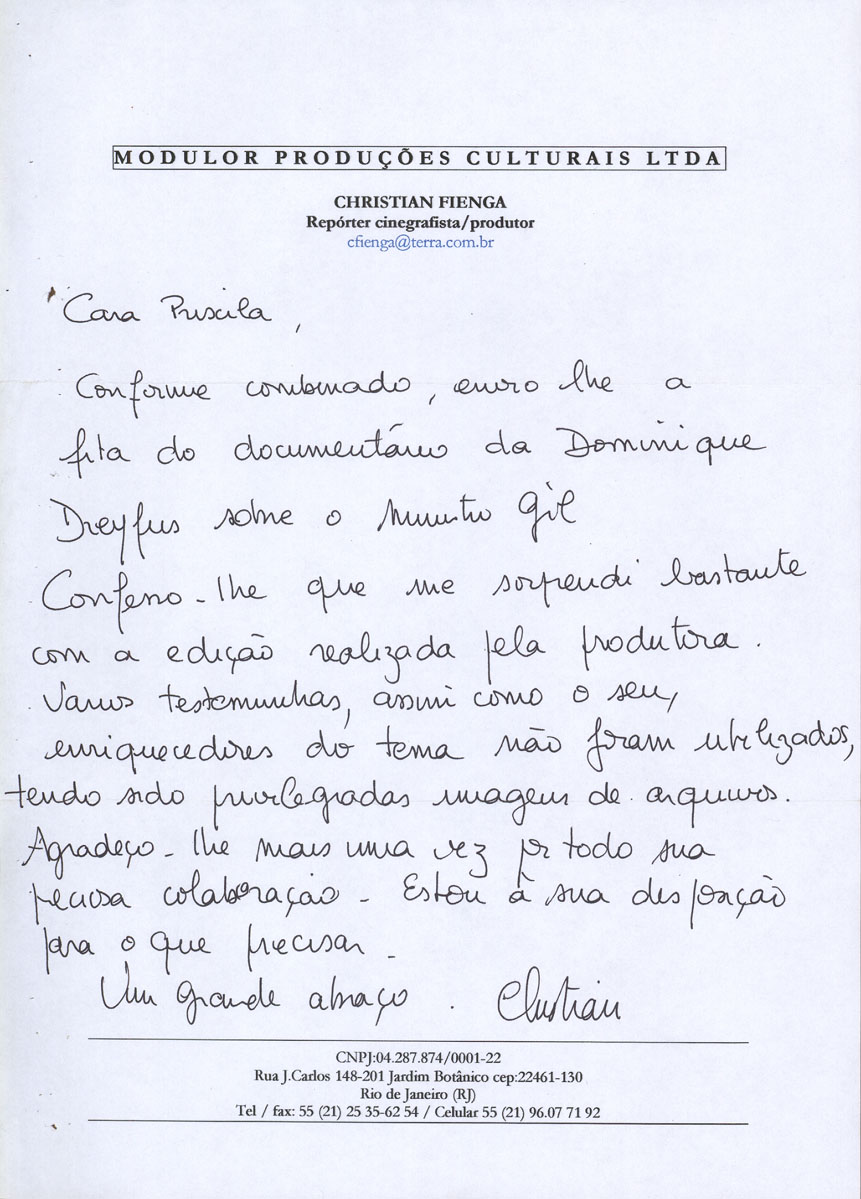 MODULOR PRODUÇÕES CULTURAIS LTDA
CHRISTIAN FIENGA
Repórter cinegrafista/produtor
cfienga@terra.com.br
Cara Priscila,
Conforme combinado, envio lhe a
fita do documentário da Dominique
Dreyfus sobre o Ministro Gil
Confesso-lhe que me sorprendi bastante
com a edição realizada pela produtora.
Varios testemunhas, assim como o seu,
enriquecedores do tema não foram utilizados,
tendo sido privilegiadas imagens de arquivos.
Agradeço-lhe mais uma vez por todo sua
preciosa colaboração. Estou à sua disposição
para o que precisar.
Um grande abraço. Christian
CNPJ:04.287.874/0001-22
Rua J.Carlos 148-201 Jardim Botânico cep:22461-130
Rio de Janeiro (RJ)
Tel / fax: 55 (21) 25 35-62 54 / Celular 55 (21) 96.07 71 92